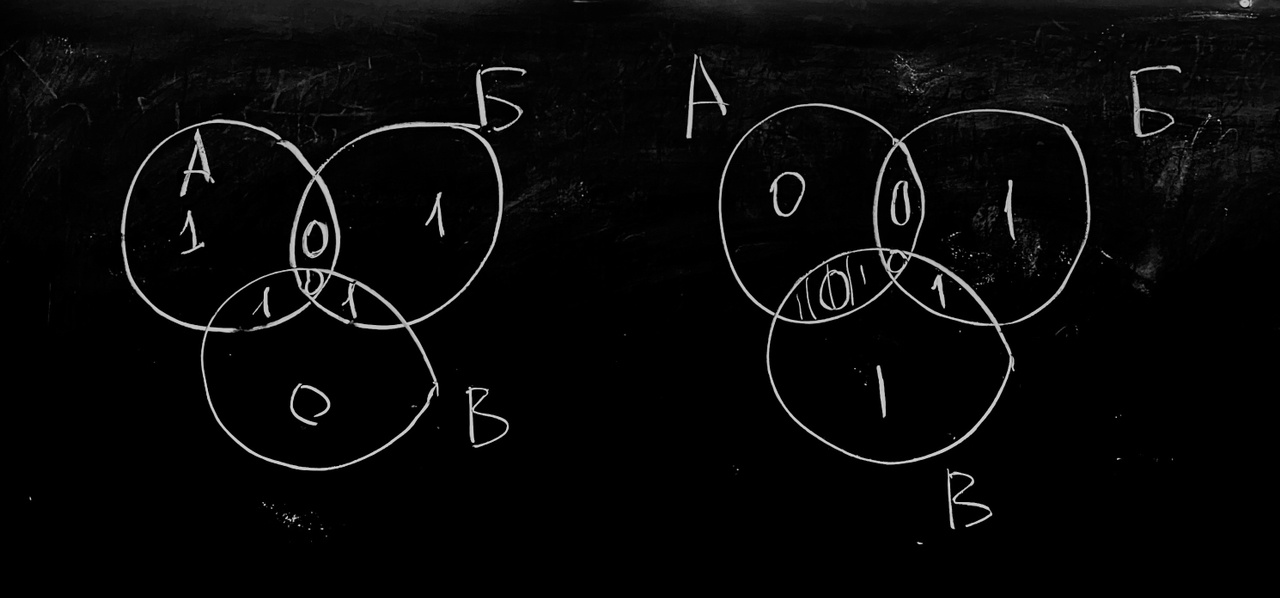 А Б
1 0 1
1 0 1
0
В
А Б
0 0 1
0 0 1
1
В